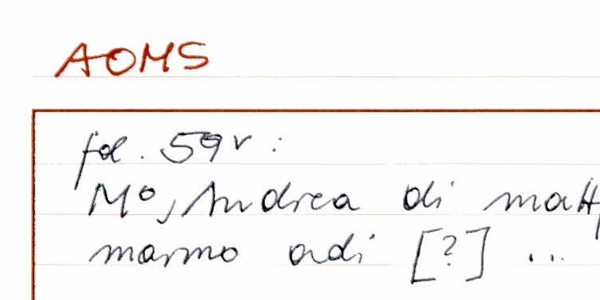 AOMS
fol. 59v:
Mo, Andrea di matt
marmo adi [?] ...